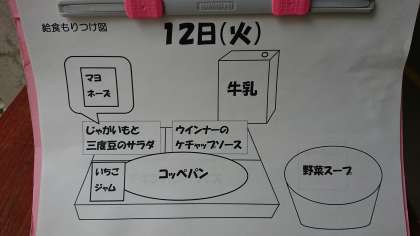 給食もりつけ図
12日(火)
マヨ
ネーズ
牛乳
じゃがいもと
三度豆のサラダ
ウインナーの
ケチャップソース
いちご
ジャム
コッペパン
野菜スープ